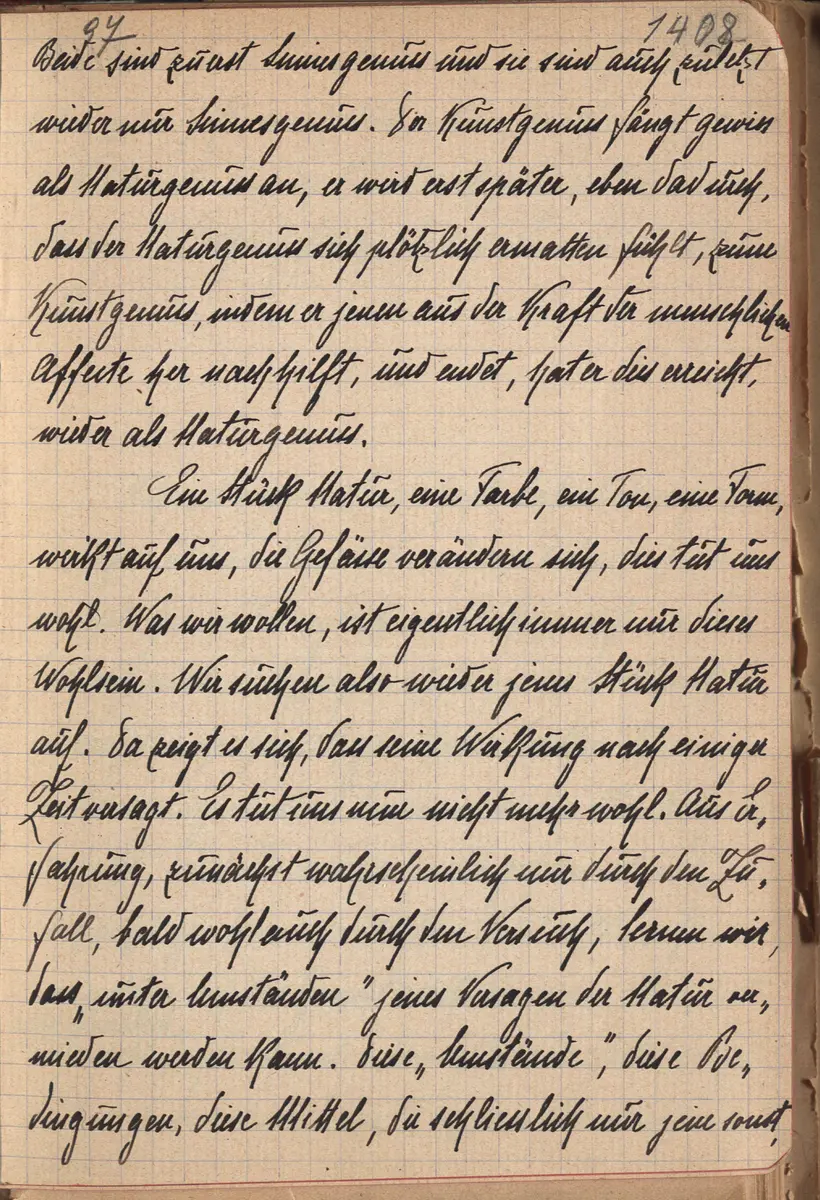 97 1408
Beide sind zuerst Sinnesgenuss und sie sind auch zuletzt
wieder nur Sinnesgenuss. Der Kunstgenuss fängt gewiss
als Naturgenuss an, er wird erst später, eben dadurch,
dass der Naturgenuss sich plötzlich ermatten fühlt, zum
Kunstgenuss, indem er jenen aus der Kraft der menschlichen
Affecte her nachhilft, und endet, hat er dies erreicht,
wieder als Naturgenuss.
Ein Stück Natur, eine Farbe, ein Ton, eine Form,
wirkt auf uns, die Gefässe verändern sich, dies tut uns
wohl. Was wir wollen, ist eigentlich immer nur dieses
Wohlsein. Wir suchen also wieder jenes Stück Natur
auf. Da zeigt es sich, dass seine Wirkung nach einiger
Zeit versagt. Es tut uns nun nicht mehr wohl. Aus Er-
fahrung, zunächst wahrscheinlich nur durch den Zu-
fall, bald wohl auch durch den Versuch, lernen wir,
dass „unter Umständen" jenes Versagen der Natur ver-
mieden werden kann. Diese „Umstände", diese Be-
dingungen, diese Mittel, die schliesslich nur jene sonst